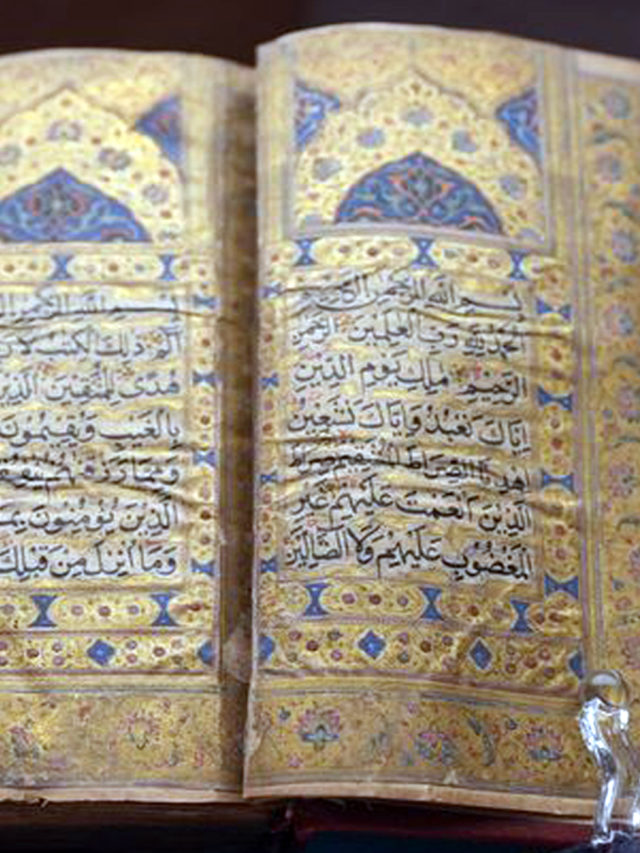 بِسْمِ اللهِ الرَّحْمٰنِ الرَّحِيْمِ
اَلْحَمْدُ لِلّٰهِ رَبِّ الْعٰلَمِيْنَ الرَّحْمٰنِ
الرَّحِيْمِ مٰلِكِ يَوْمِ الدِّيْنِ
اِيَّاكَ نَعْبُدُ وَاِيَّاكَ نَسْتَعِيْنُ
اِهْدِنَا الصِّرَاطَ الْمُسْتَقِيْمَ صِرَاطَ
الَّذِيْنَ اَنْعَمْتَ عَلَيْهِمْ غَيْرِ
الْمَغْضُوْبِ عَلَيْهِمْ وَلَا الضَّالِّيْنَ
بِسْمِ اللهِ الرَّحْمٰنِ
الٓمٓ ذٰلِكَ الْكِتٰبُ لَا
هُدًى لِلْمُتَّقِيْنَ الَّذِيْنَ
بِالْغَيْبِ وَيُقِيْمُوْنَ
وَمِمَّا رَزَقْنٰهُمْ
الَّذِيْنَ يُؤْمِنُوْنَ
وَمَا اُنْزِلَ مِنْ قَبْلِكَ